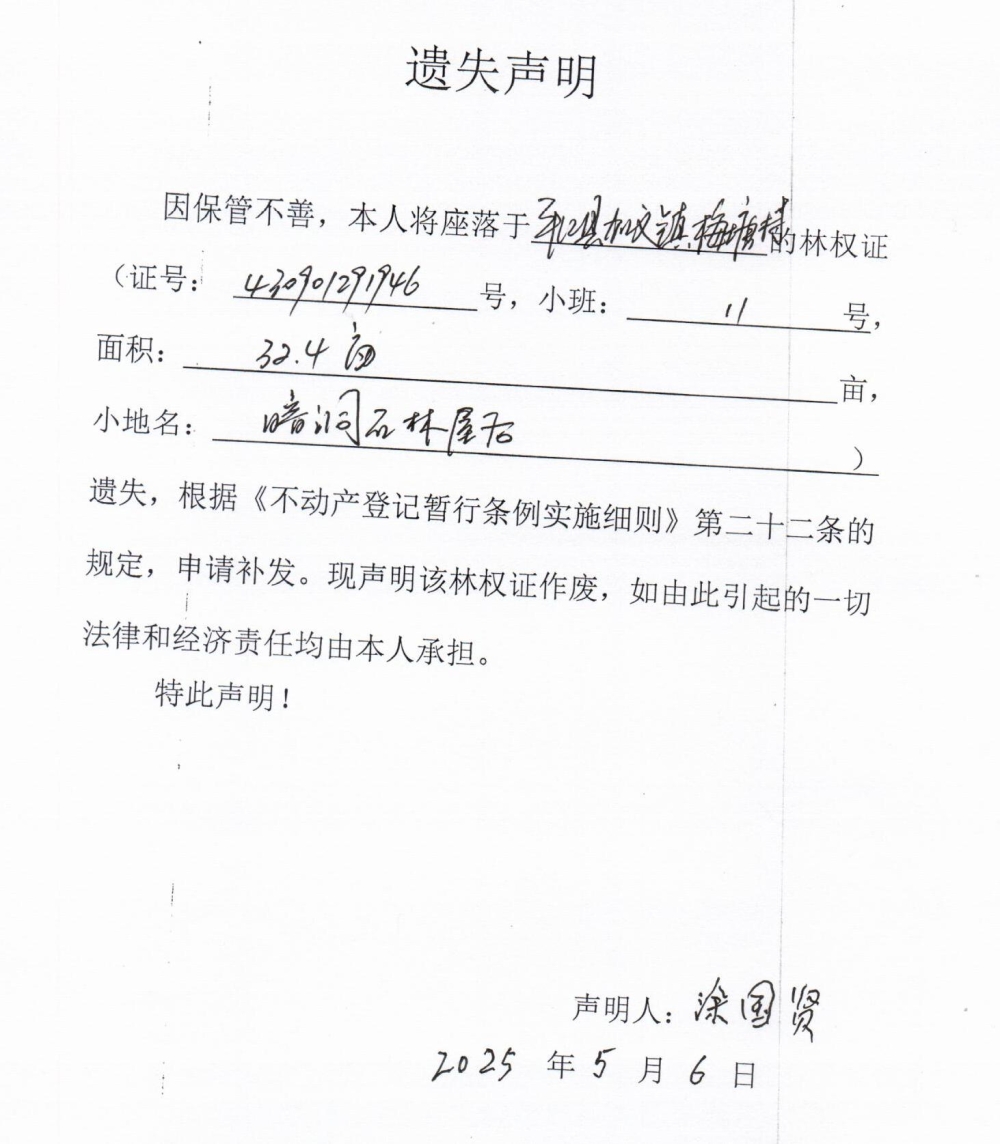 遗失声明
因保管不善，本人将座落于平江县加义镇梅塘村的林权证
（证号：430901291946号，小班：11号，
面积：32.4亩亩，
小地名：暗洞石林屋右）
遗失，根据《不动产登记暂行条例实施细则》第二十二条的
规定，申请补发。现声明该林权证作废，如由此引起的一切
法律和经济责任均由本人承担。
特此声明！
声明人：涂国贤
2025年5月6日